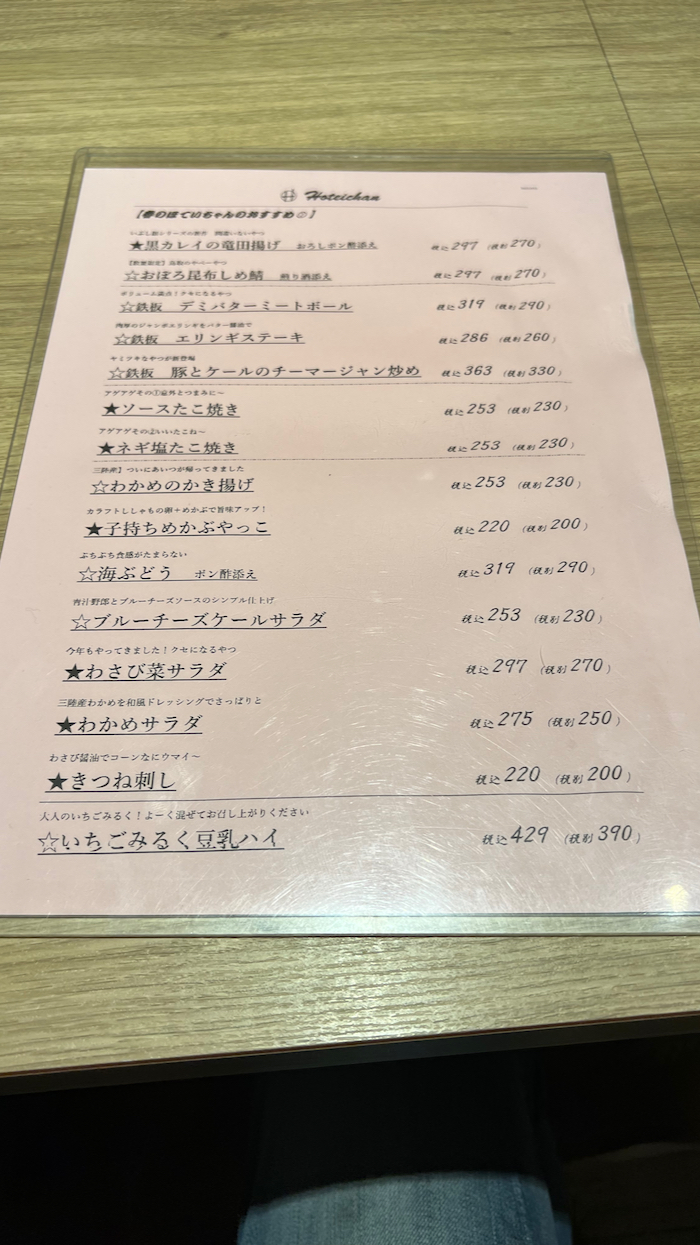 Hoteichan
【春のほていちゃんのおすすめ
★黒カレイの竜田揚げ おろしポン酢添え 税込297 (税別270)
☆おぼろ昆布しめ鯖 煎り酒添え 税込297 (税別270)
ボリューム満点!クセになるやつ
☆鉄板 デミバターミートボール 税込319 (税別290)
肉厚のジャンボエリンギをバター醤油で
☆鉄板 エリンギステーキ 税込286 (税別260)
ヤミツキなやつが新登場
☆鉄板 豚とケールのチーマージャン炒め 税込363 (税別330)
アゲアゲその①意外とつまみに～
★ソースたこ焼き 税込253 (税別230)
アゲアゲその②いいたこね～
★ネギ塩たこ焼き 税込253 (税別230)
三陸産】ついにあいつが帰ってきました
☆わかめのかき揚げ 税込253 (税別230)
カラフトししゃもの卵+めかぶで旨味アップ!
★子持ちめかぶやっこ 税込220 (税別200)
ぷちぷち食感がたまらない
☆海ぶどう ポン酢添え 税込319 (税別290)
青汁野郎とブルーチーズソースのシンプル仕上げ
☆ブルーチーズケールサラダ 税込253 (税別230)
今年もやってきました!クセになるやつ
★わさび菜サラダ 税込297 (税別270)
三陸産わかめを和風ドレッシングでさっぱりと
★わかめサラダ 税込275 (税別250)
わさび醤油でコーンなにウマイ～
★きつね刺し 税込220 (税別200)
大人のいちごみるく!よーく混ぜてお召し上がりください
☆いちごみるく豆乳ハイ 税込429 (税別390)